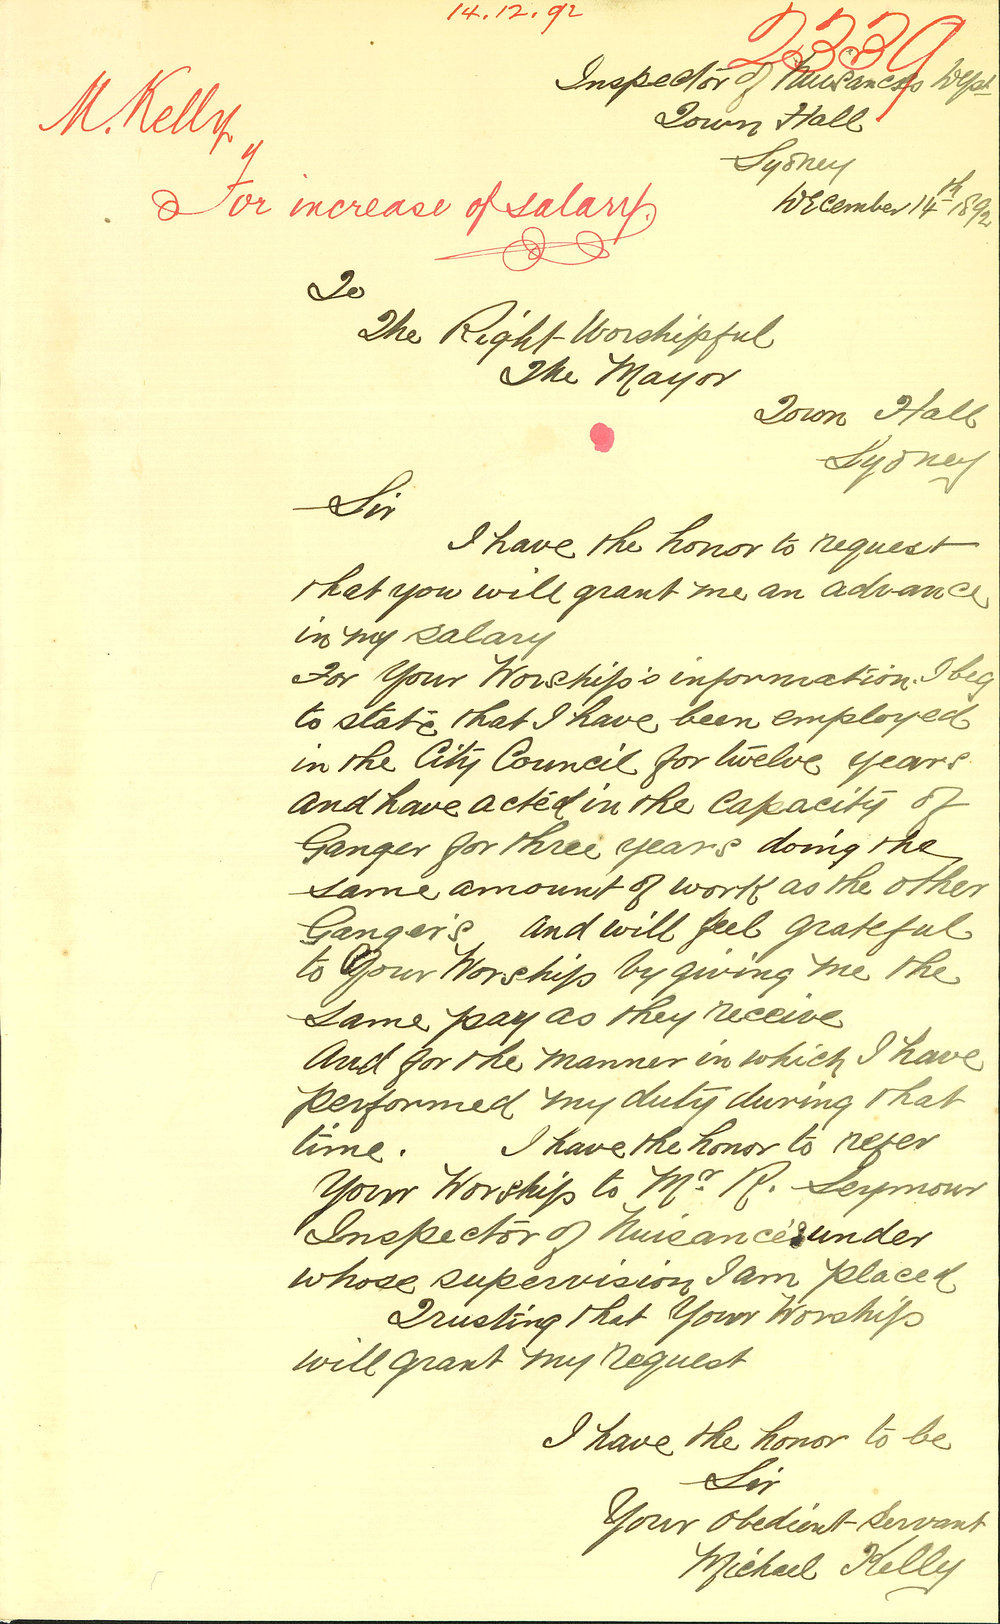 14.12.92
2339
M. Kelly
For increase of salary.
Inspector of Nuisances Dept
Town Hall
Sydney
December 14th 1892
To
The Right Worshipful
The Mayor
Town Hall
Sydney
Sir
I have the honor to request
that you will grant me an advance
in my salary
For Your Worship's information. I beg
to state that I have been employed
in the City Council for twelve years
and have acted in the capacity of
Ganger for three years doing the
same amount of work as the other
Ganger's and will feel grateful
to Your Worship by giving me the
same pay as they receive
And for the manner in which I have
performed my duty during that
time. I have the honor to refer
Your Worship to Mr R. Seymour
Inspector of Nuisances under
whose supervision I am placed
Trusting that Your Worship
will grant my request
I have the honor to be
Sir
Your obedient Servant
Michael Kelly